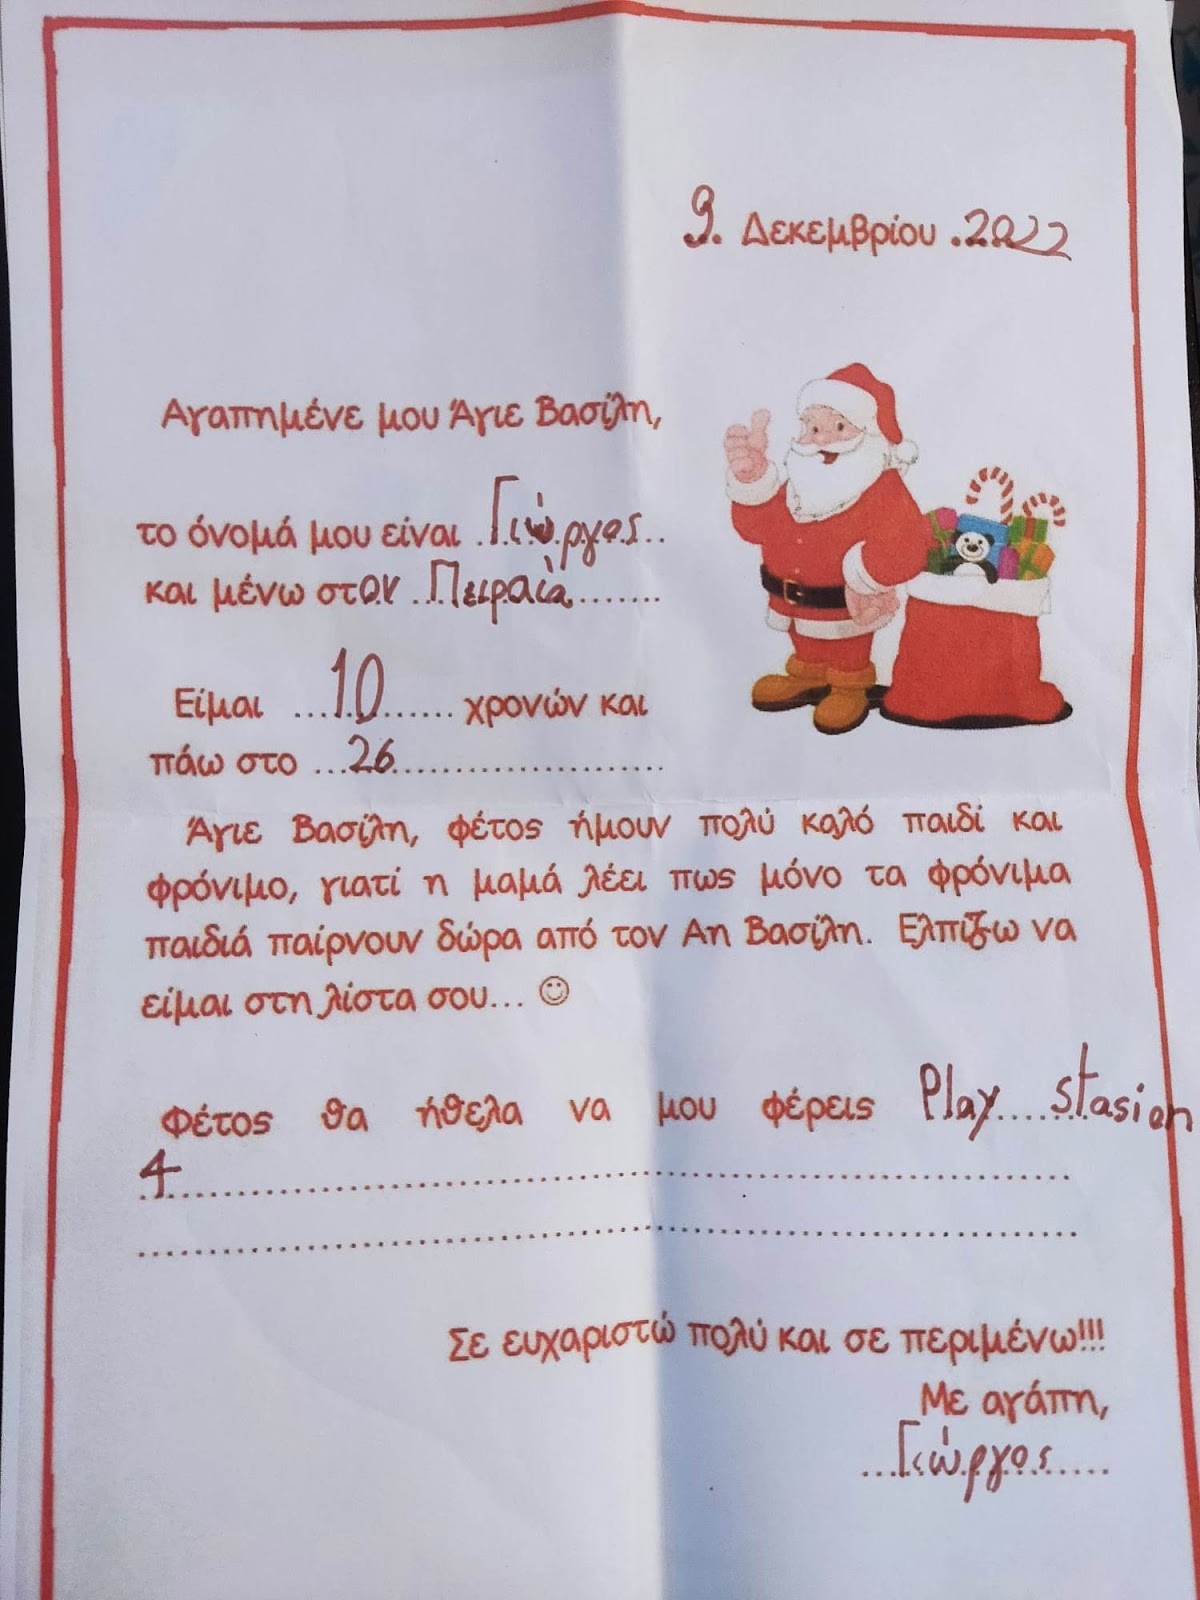 9. Δεκεμβρίου .2022
Αγαπημένε μου Άγιε Βασίλη,
το όνομά μου είναι .Γιώργος..
και μένω στον ...Πειραιά.......
Είμαι ...10...... χρονών και
πάω στο ...26......................
Άγιε Βασίλη, φέτος ήμουν πολύ καλό παιδί και
φρόνιμο, γιατί η μαμά λέει πως μόνο τα φρόνιμα
παιδιά παίρνουν δώρα από τον Αη Βασίλη. Ελπίζω να
είμαι στη λίστα σου... ☺
Φέτος θα ήθελα να μου φέρεις Play....stasion
4
Σε ευχαριστώ πολύ και σε περιμένω!!!
Με αγάπη,
...Γιώργος.....